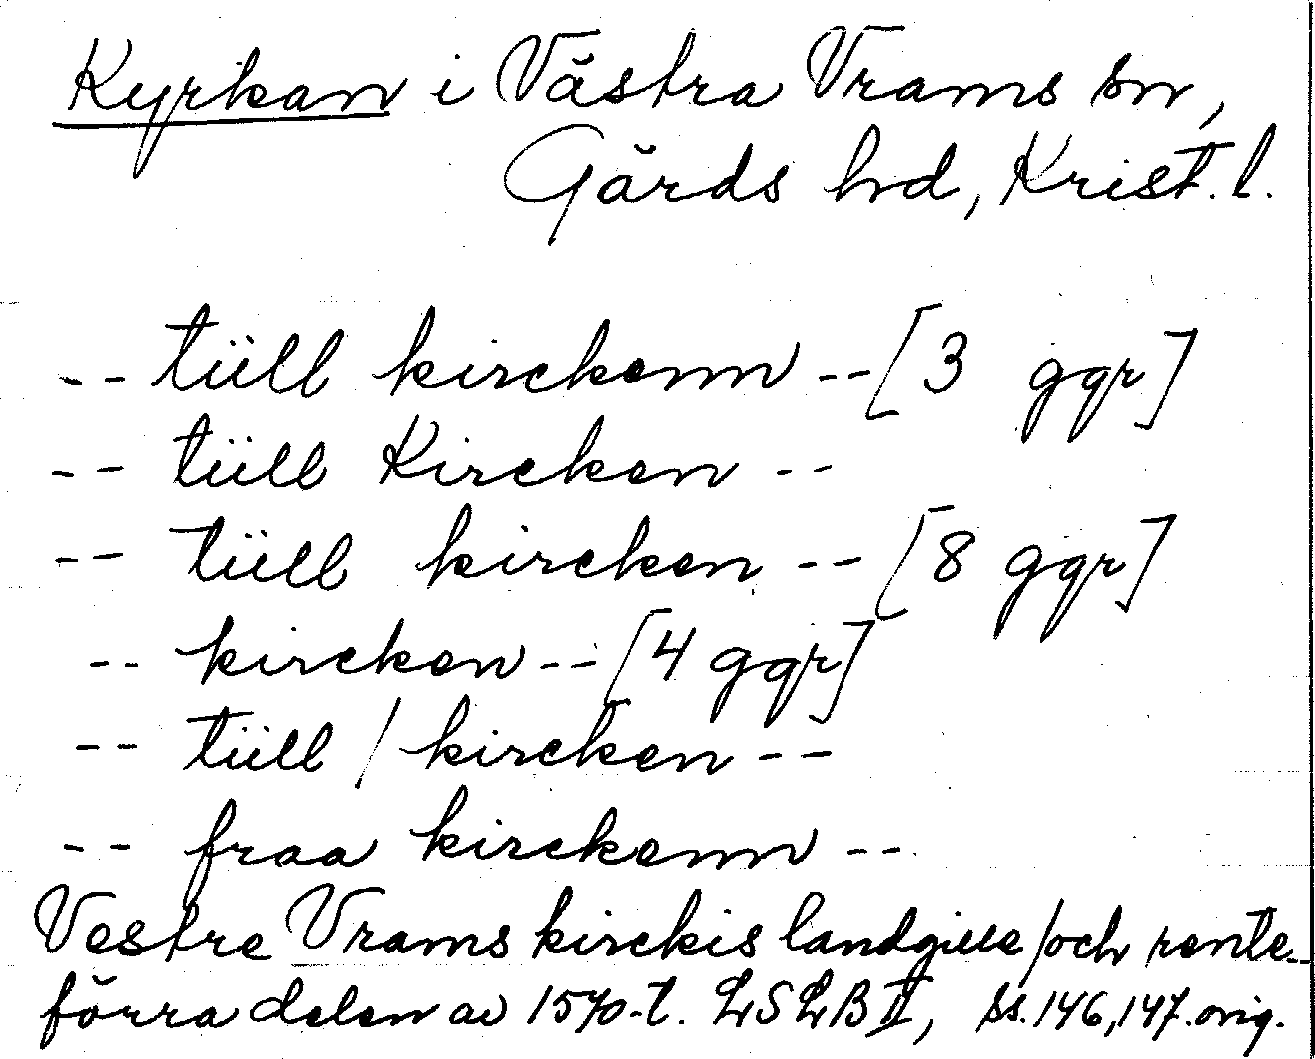 Kyrkan i Västra Vrams sn,
Gärds hd, Krist. l.
-- tüll kirckenn -- [3 ggr]
-- tüll Kircken --
-- tüll kircken -- [8 ggr]
-- kircken -- [4 ggr]
-- tüll / kircken --
-- fraa kirckenn --
Vestre Vrams kirckis landgille / och rente--
förra delen av 1570-t. LSLB II, ss. 146, 147. orig.